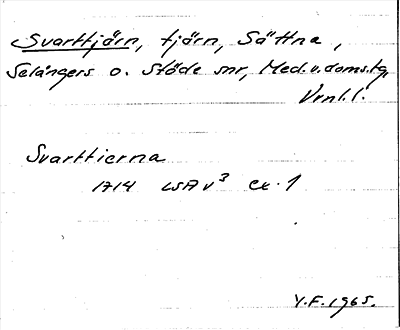 Svarttjärn, tjärn, Sättna,
Selångers o. Stöde snr, Med.v.doms.tg,
Vrnl.l.
Svarttierna
1714 LSA v³ ex. 1
Y.F. 1965.